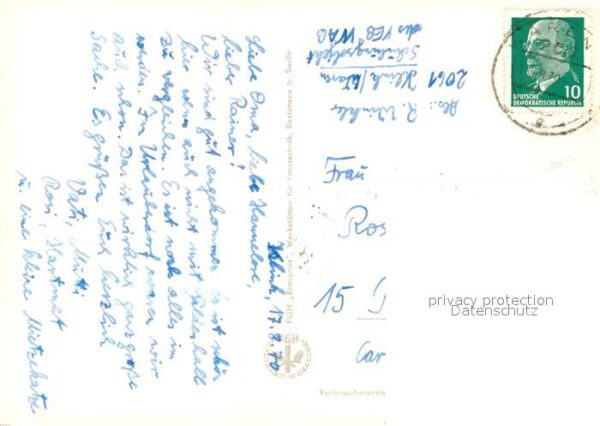 Klink, 17.8.70
Liebe Oma, liebe Hannelore,
lieber Rainer!
Wir sind gut angekommen. Es ist schön
hier wenn auch nicht mit
zu vergleichen. Es ist noch alles im
werden. Im Urlauberdorf waren wir
auch schon. Das ist wirklich ganz große
Sache. Es grüßen Euch herzlich
Vati, Mutti
Rosi, Hartmut
u. eine kleine Miezekatze
PGH „Rotophot", Werkstätten für Fototechnik, Bestensee b. Berlin
Abs.: R. Winkler
2061 Klink/Waren
Schulungsobjekt
des VEB WAB
DEUTSCHE
DEMOKRATISCHE REPUBLIK
10
Frau
Ros
15
Car
privacy protection
Datenschutz
Verbraucherpreis